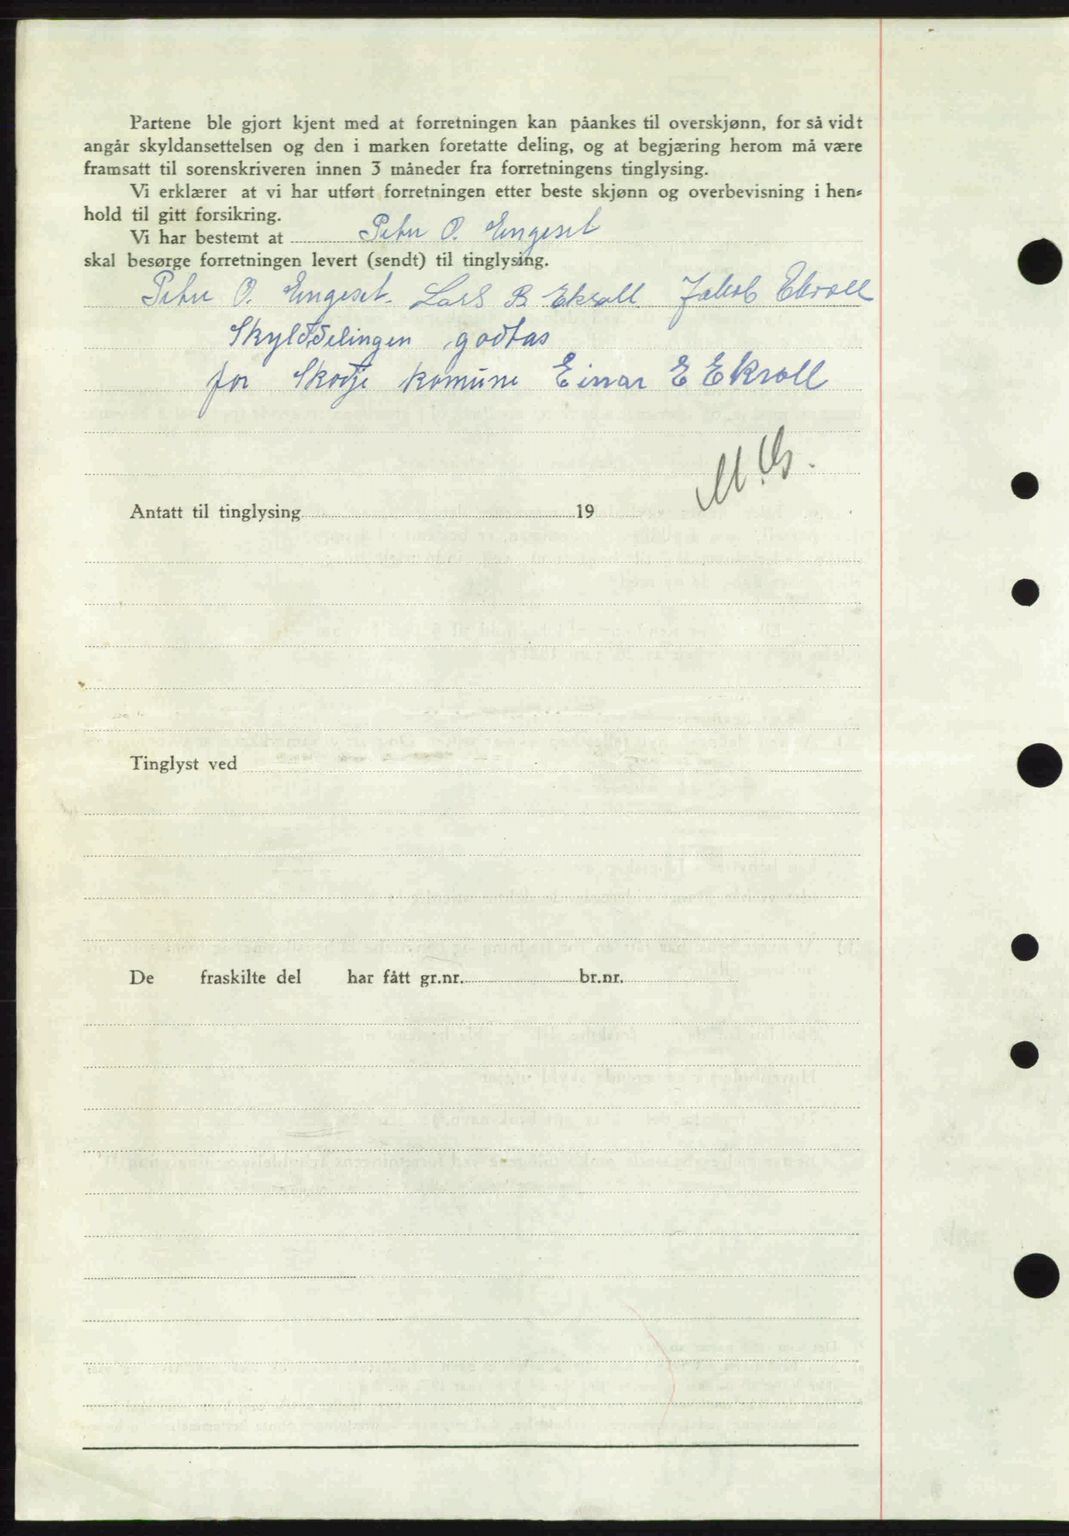 Partene ble gjort kjent med at forretningen kan påankes til overskjønn, for så vidt
angår skyldansettelsen og den i marken foretatte deling, og at begjæring herom må være
framsatt til sorenskriveren innen 3 måneder fra forretningens tinglysing.
Vi erklærer at vi har utført forretningen etter beste skjønn og overbevisning i hen-
hold til gitt forsikring.
Vi har bestemt at Peter O. Engeset
skal besørge forretningen levert (sendt) til tinglysing.
Peter O. Engeset. Lars B Ekroll Jakob Ekroll
Skylddelingen godtas
for Skodje komune Einar E Ekroll
Antatt til tinglysing 19
Tinglyst ved
De fraskilte del har fått gr.nr. br.nr.